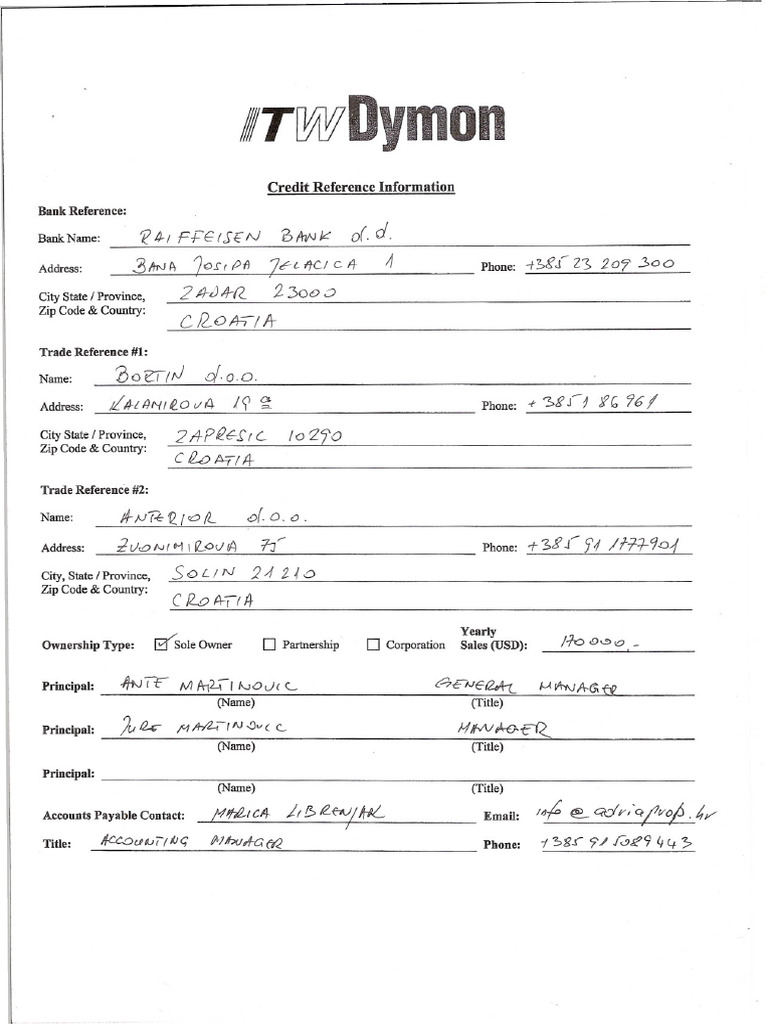 ITW Dymon
Credit Reference Information
Bank Reference:
Bank Name: RAIFFEISEN BANK d.d.
Address: BANA JOSIPA JELACICA 1 Phone: +385 23 209 300
City State / Province, ZADAR 23000
Zip Code & Country: CROATIA
Trade Reference #1:
Name: BORTIN d.o.o.
Address: KALAMIROVA 19 a Phone: +3851 86961
City State / Province, ZAPRESIC 10290
Zip Code & Country: CROATIA
Trade Reference #2:
Name: ANTERIOR d.o.o.
Address: ZVONIMIROVA 75 Phone: +385 91 1777901
City, State / Province, SOLIN 21210
Zip Code & Country: CROATIA
Yearly
Ownership Type: ☑ Sole Owner ☐ Partnership ☐ Corporation Sales (USD): 170000,-
Principal: ANTE MARTINOVIC GENERAL MANAGER
(Name) (Title)
Principal: JURE MARTINOVIC MANAGER
(Name) (Title)
Principal:
(Name) (Title)
Accounts Payable Contact: MARICA LIBRENJAK Email: info@adriaprop.hr
Title: ACCOUNTING MANAGER Phone: +385 91 5089443